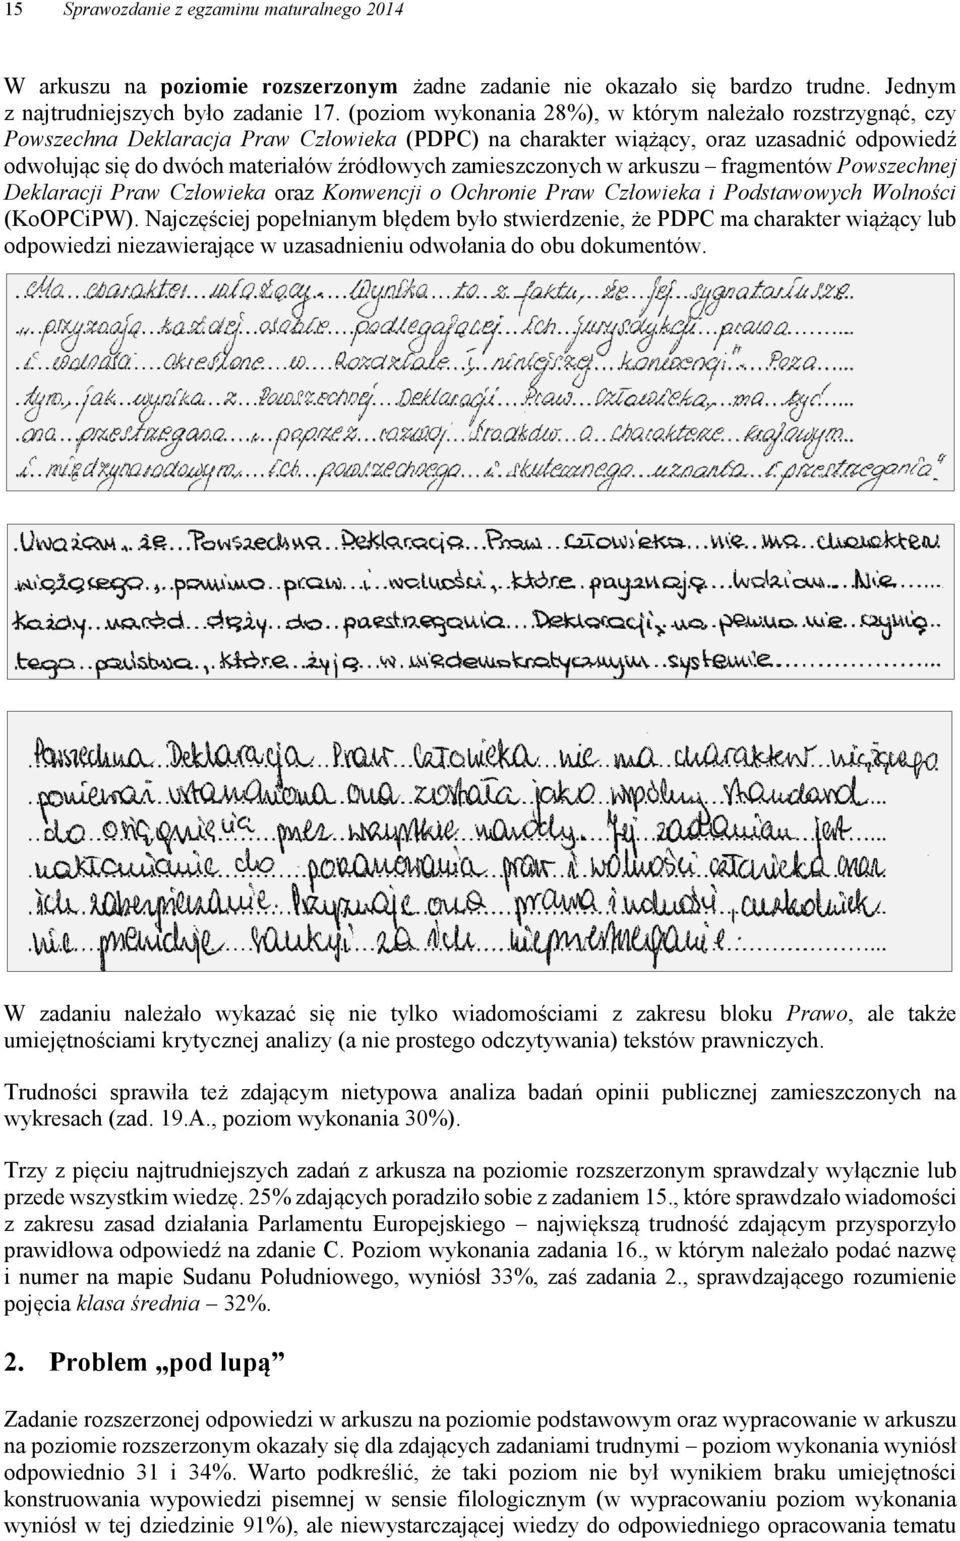 15 Sprawozdanie z egzaminu maturalnego 2014
W arkuszu na poziomie rozszerzonym żadne zadanie nie okazało się bardzo trudne. Jednym
z najtrudniejszych było zadanie 17. (poziom wykonania 28%), w którym należało rozstrzygnąć, czy
Powszechna Deklaracja Praw Człowieka (PDPC) na charakter wiążący, oraz uzasadnić odpowiedź
odwołując się do dwóch materiałów źródłowych zamieszczonych w arkuszu – fragmentów Powszechnej
Deklaracji Praw Człowieka oraz Konwencji o Ochronie Praw Człowieka i Podstawowych Wolności
(KoOPCiPW). Najczęściej popełnianym błędem było stwierdzenie, że PDPC ma charakter wiążący lub
odpowiedzi niezawierające w uzasadnieniu odwołania do obu dokumentów.
Ma charakter wiążący. Wynika to z faktu, że jej sygnatariusze
„przyznają każdej osobie podlegającej ich jurysdykcji prawa
i wolności określone w Rozdziale I niniejszej konwencji". Poza
tym, jak wynika z Powszechnej Deklaracji Praw Człowieka, ma być
ona przestrzegana „poprzez rozwój środków o charakterze krajowym
i międzynarodowym, ich powszechnego i skutecznego uznania i przestrzegania"
Uważam, że Powszechna Deklaracja Praw Człowieka nie ma charakteru
wiążącego, pomimo praw i wolności, które przyznają ludziom. Nie
każdy naród dąży do przestrzegania Deklaracji, na pewno nie czynią
tego państwa, które żyją w niedemokratycznym systemie
Powszechna Deklaracja Praw Człowieka nie ma charakteru wiążącego
ponieważ ustanowiona ona została jako wspólny standard
do osiągnięcia przez wszystkie narody. Jej zadaniem jest
nakłanianie do poszanowania praw i wolności człowieka oraz
ich zabezpieczanie. Przyznaje ona prawa i wolności, aczkolwiek
nie przewiduje sankcji za ich nieprzestrzeganie.
W zadaniu należało wykazać się nie tylko wiadomościami z zakresu bloku Prawo, ale także
umiejętnościami krytycznej analizy (a nie prostego odczytywania) tekstów prawniczych.
Trudności sprawiła też zdającym nietypowa analiza badań opinii publicznej zamieszczonych na
wykresach (zad. 19.A., poziom wykonania 30%).
Trzy z pięciu najtrudniejszych zadań z arkusza na poziomie rozszerzonym sprawdzały wyłącznie lub
przede wszystkim wiedzę. 25% zdających poradziło sobie z zadaniem 15., które sprawdzało wiadomości
z zakresu zasad działania Parlamentu Europejskiego – największą trudność zdającym przysporzyło
prawidłowa odpowiedź na zdanie C. Poziom wykonania zadania 16., w którym należało podać nazwę
i numer na mapie Sudanu Południowego, wyniósł 33%, zaś zadania 2., sprawdzającego rozumienie
pojęcia klasa średnia – 32%.
2. Problem „pod lupą”
Zadanie rozszerzonej odpowiedzi w arkuszu na poziomie podstawowym oraz wypracowanie w arkuszu
na poziomie rozszerzonym okazały się dla zdających zadaniami trudnymi – poziom wykonania wyniósł
odpowiednio 31 i 34%. Warto podkreślić, że taki poziom nie był wynikiem braku umiejętności
konstruowania wypowiedzi pisemnej w sensie filologicznym (w wypracowaniu poziom wykonania
wyniósł w tej dziedzinie 91%), ale niewystarczającej wiedzy do odpowiedniego opracowania tematu